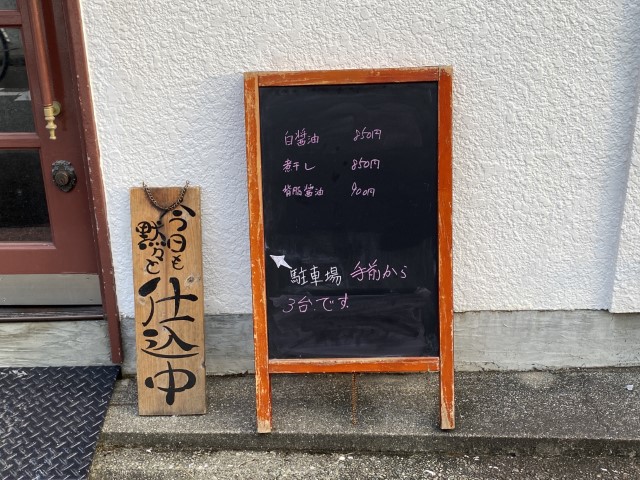 今日も
黙々と
仕込中
白醤油 850円
煮干し 850円
背脂醤油 900円
駐車場 手前から
3台です